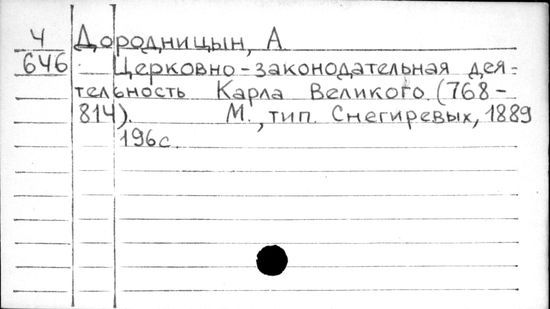 Ч Дородницын, А
646 Церковно-законодательная дея-
тельность Карла Великого (768-
814). М., тип. Снегиревых, 1889
196с.